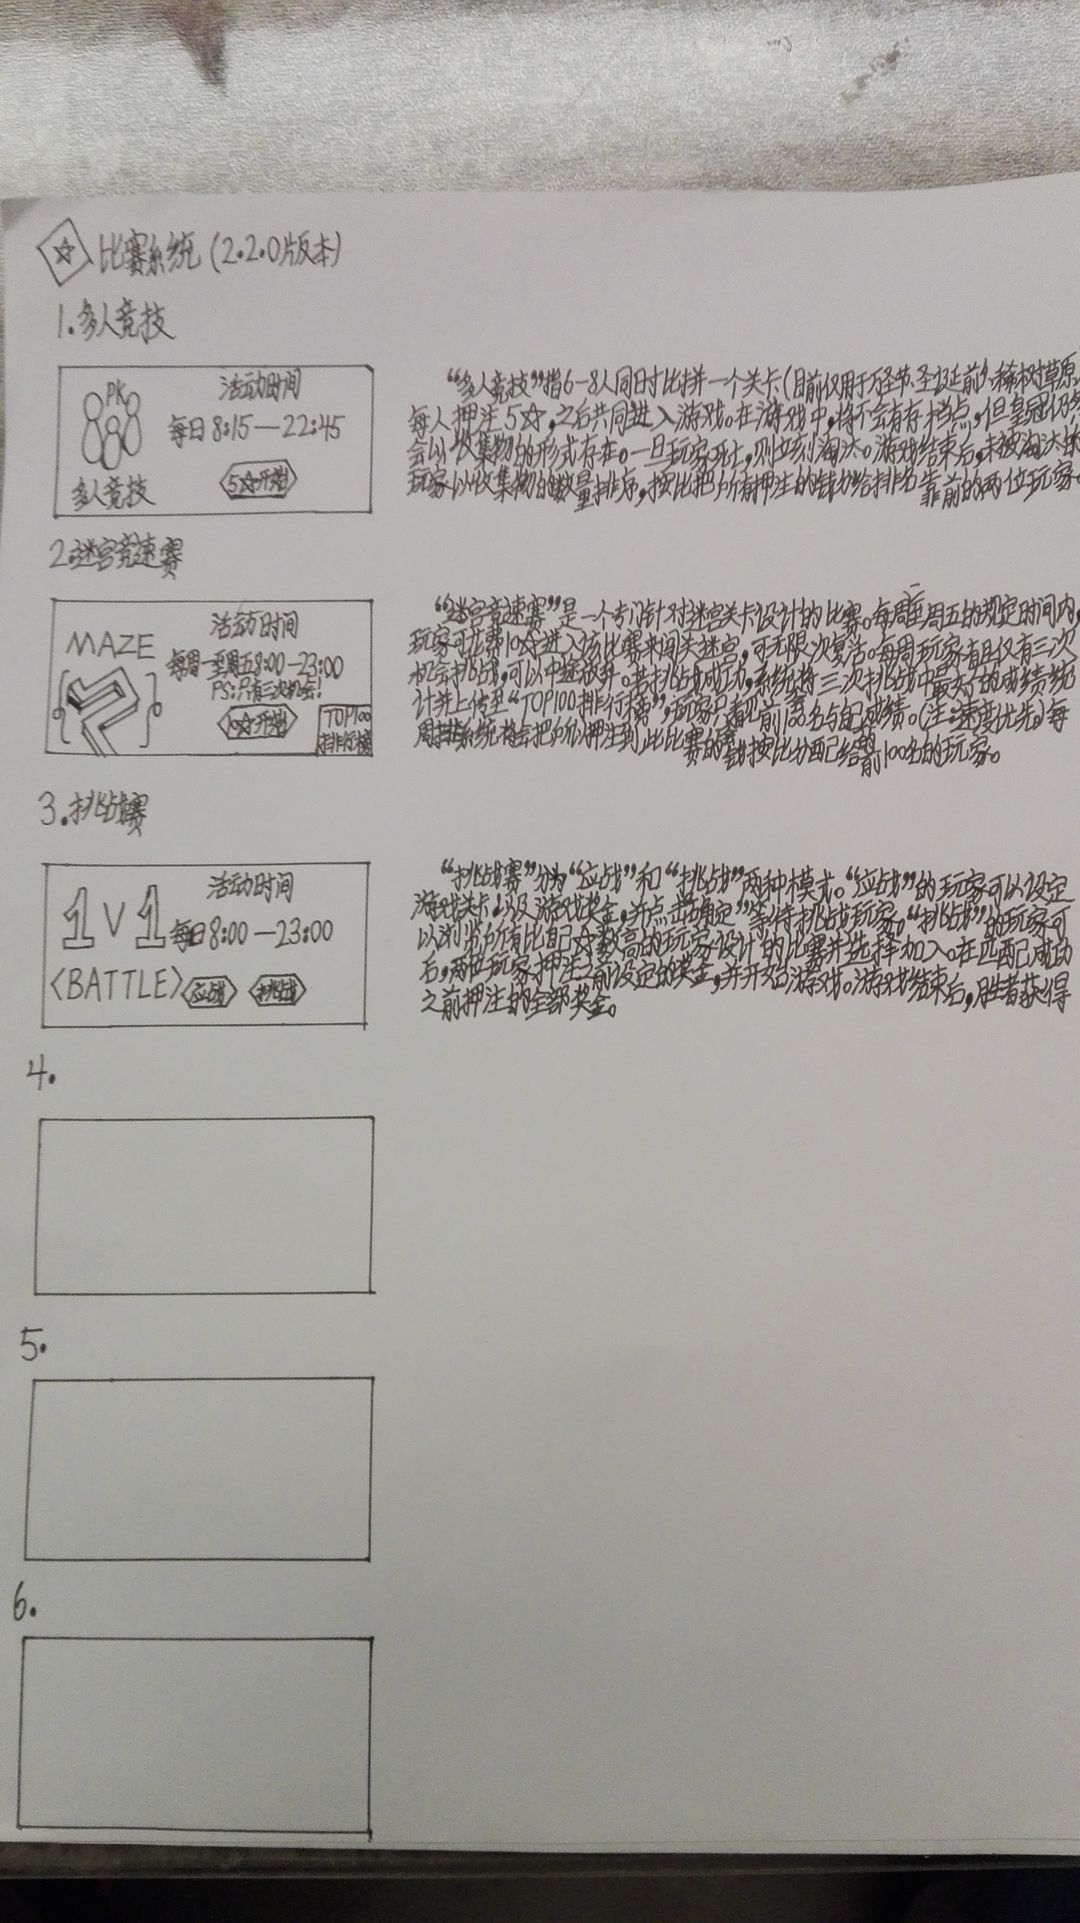 ☆ 比赛系统(2.2.0版本)
1.多人竞技
PK
活动时间
每日8:15—22:45
多人竞技
5☆开始
“多人竞技”指6-8人同时比拼一个关卡(目前仅用于万圣节、圣诞前夕、橡树草原
每人押注5☆,之后共同进入游戏。在游戏中,将不会有存档点,但皇冠仍然
会以收集物的形式存在。一旦玩家死亡,则立刻淘汰。游戏结束后,未被淘汰的
玩家以收集物的数量排序,按比把所有押注的钱分给排名靠前的两位玩家。
2.迷宫竞速赛
MAZE
活动时间
每周一至周五8:00—23:00
PS:只有三次机会!
10☆开始
TOP100
排行榜
“迷宫竞速赛”是一个专门针对迷宫关卡设计的比赛。每周一至周五的规定时间内,
玩家可花费10☆进入该比赛来闯关迷宫,可无限次复活。每周玩家有且仅有三次
机会挑战,可以中途放弃。若挑战成功,系统将三次挑战中最好的成绩统
计并上传至“TOP100排行榜”,玩家只看见前100名与自己成绩。(注:速度优先)每
周系统将会把所以押注到此比赛的☆按比分配给前100名的玩家。
3.挑战赛
1V1
活动时间
每日8:00—23:00
<BATTLE>
应战
挑战
“挑战赛”分为“应战”和“挑战”两种模式。“应战”的玩家可以设定
游戏关卡以及游戏奖金,并点击“确定”等待挑战玩家。“挑战”的玩家可
以浏览所有比自己☆数高的玩家设计的比赛并选择加入。在匹配成功
后,两位玩家押注之前设定的奖金,并开始游戏。游戏结束后,胜者获得
之前押注的全部奖金。
4.
5.
6.